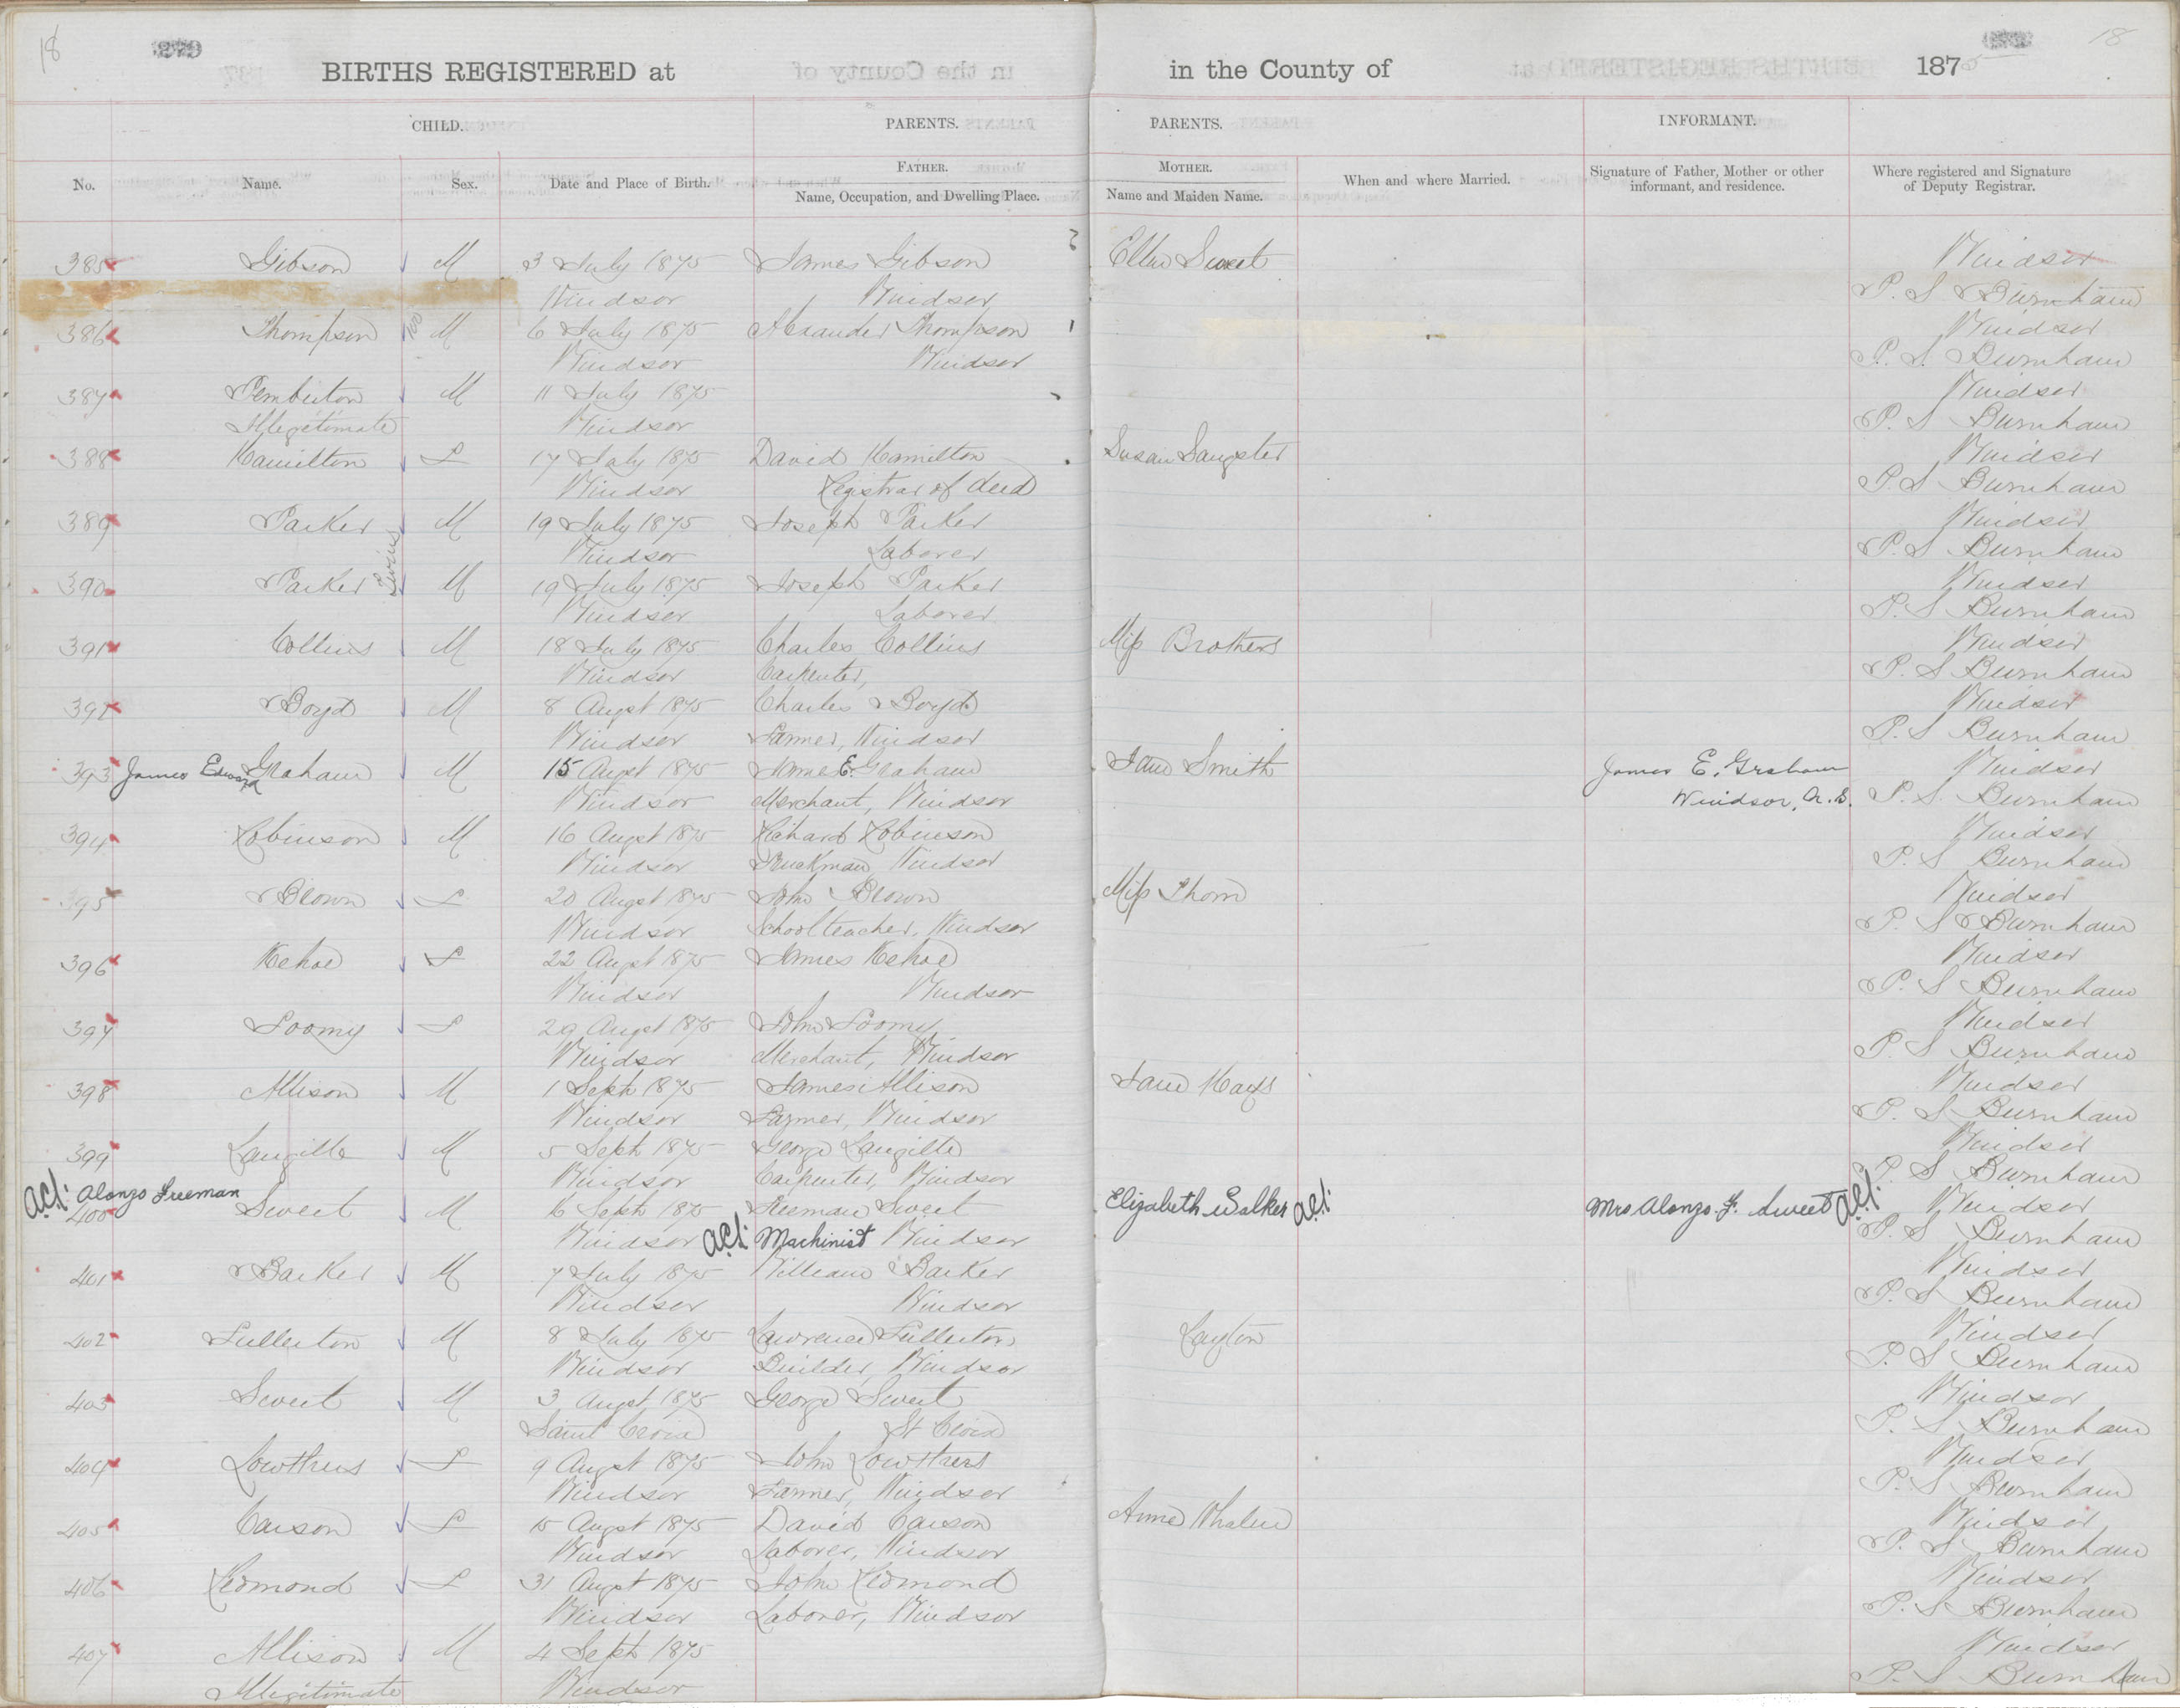 18
279
18
BIRTHS REGISTERED at
in the County of
1875
CHILD.
PARENTS.
PARENTS.
INFORMANT.
No.
Name.
Sex.
Date and Place of Birth.
FATHER.
Name, Occupation, and Dwelling Place.
MOTHER.
Name and Maiden Name.
When and where Married.
Signature of Father, Mother or other
informant, and residence.
Where registered and Signature
of Deputy Registrar.
385 Gibson M 3 July 1875 James Gibson Ellen Sweet Windsor
Windsor Windsor P. S Burnham
386 Thompson M 6 July 1875 Alexander Thompson Windsor
Windsor Windsor P. S. Burnham
387 Pemberton M 11 July 1875 Windsor
Illegitimate Windsor P. S Burnham
388 Hamilton F 17 July 1875 David Hamilton Susan Sangster Windsor
Windsor Registrar of deed P. S Burnham
389 Parker M 19 July 1875 Joseph Parker Windsor
Twins
Windsor Laborer P. S Burnham
390 Parker M 19 July 1875 Joseph Parker Windsor
Windsor Laborer P. S Burnham
391 Collins M 18 July 1875 Charles Collins Miss Brothers Windsor
Windsor Carpenter, P. S Burnham
392 Boyd M 8 Augst 1875 Charles Boyd Windsor
Windsor Farmer, Windsor P. S Burnham
393 James Edward Graham M 15 Augst 1875 James E. Graham Jane Smith James E. Graham Windsor
Windsor Merchant, Windsor Windsor, P. S. Burnham
394 Robinson M 16 Augst 1875 Richard Robinson Windsor
Windsor Truckman, Windsor P. S Burnham
395 Brown F 20 Augst 1875 John Brown Miss Thom Windsor
Windsor Schoolteacher, Windsor P. S Burnham
396 Kehoe F 22 Augst 1875 James Kehoe Windsor
Windsor Windsor P. S Burnham
397 Toomy F 29 Augst 1875 John Toomy Windsor
Windsor Merchant, Windsor P. S Burnham
398 Allison M 1 Sept 1875 James Allison Jane Hays Windsor
Windsor Farmer, Windsor P. S Burnham
399 Langille M 5 Sept 1875 George Langille Windsor
Windsor Carpenter, Windsor P. S Burnham
act: Alonzo Freeman
400 Sweet M 6 Sept 1875 Freeman Sweet Elizabeth Walker act: Mrs Alonzo F. Sweet act: Windsor
Windsor act: Machinist Windsor P. S Burnham
401 Barker M 7 July 1875 William Barker Windsor
Windsor Windsor P. S Burnham
402 Fullerton M 8 July 1875 Lawrence Fullerton Layton Windsor
Windsor Builder, Windsor P. S Burnham
403 Sweet M 3 Augst 1875 George Sweet Windsor
Saint Croix St Croix P. S Burnham
404 Lowthers F 9 Augst 1875 John Lowthers Windsor
Windsor Farmer, Windsor P. S Burnham
405 Carson F 15 Augst 1875 David Carson Anne Whalen Windsor
Windsor Laborer, Windsor P. S Burnham
406 Redmond F 31 Augst 1875 John Redmond Windsor
Windsor Laborer, Windsor P. S Burnham
407 Allison M 4 Sept 1875 Windsor
Illegitimate Windsor P. S Burnham